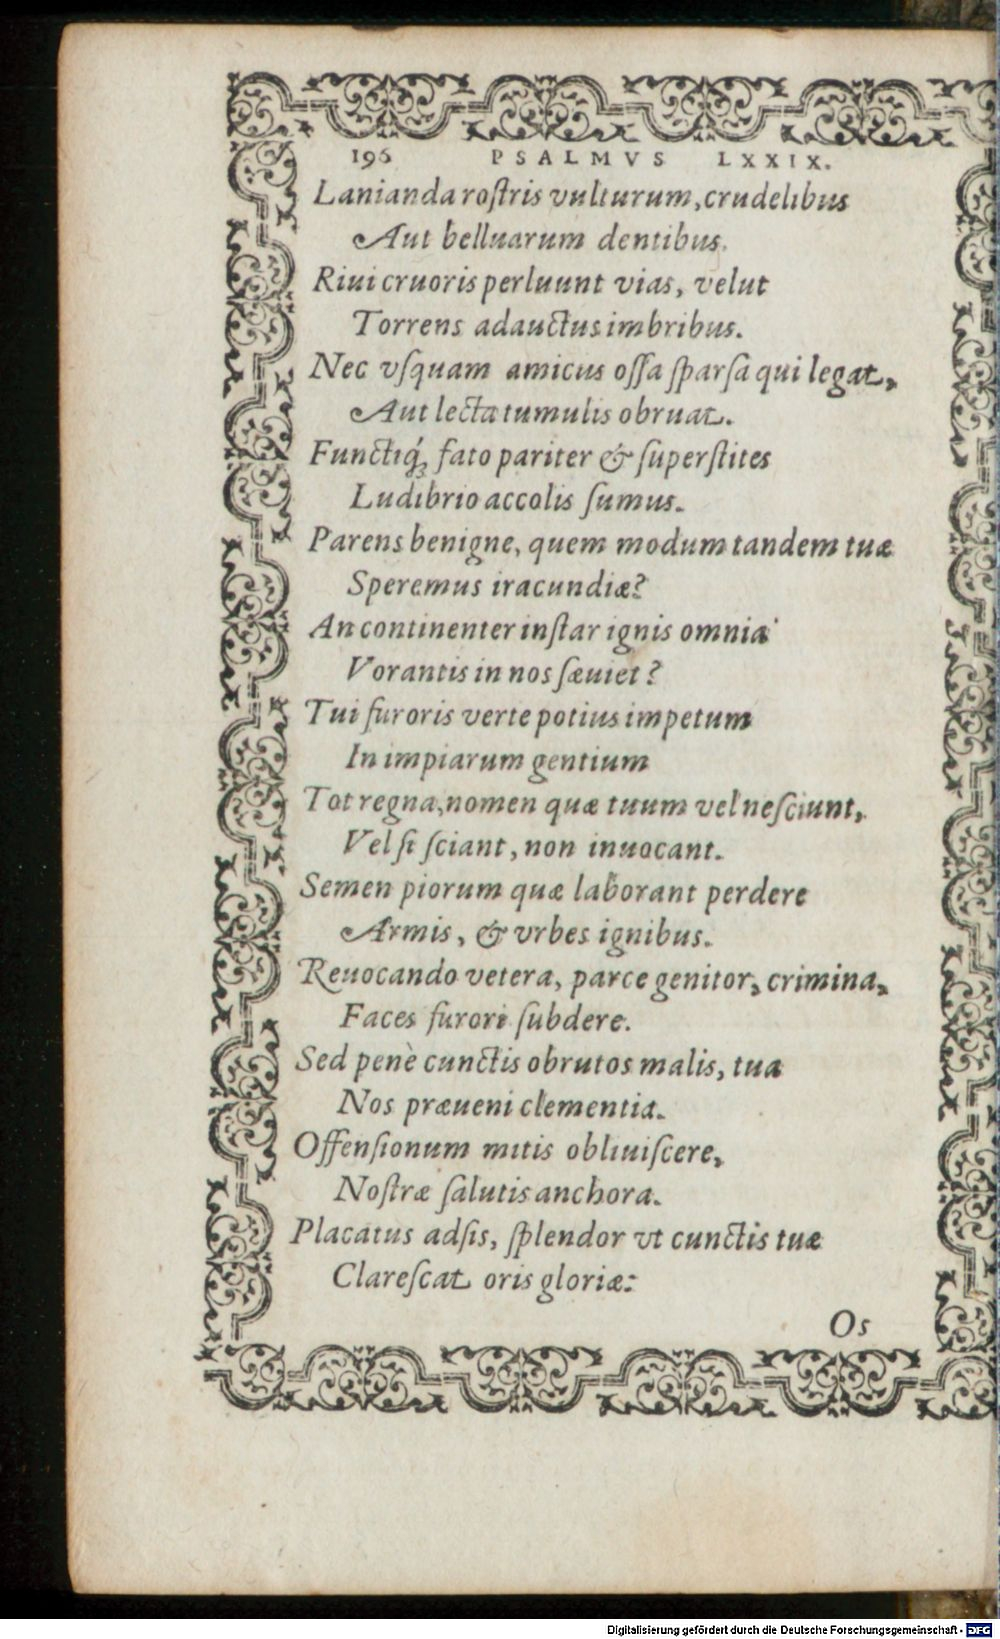 196 PSALMVS LXXIX.
Lanianda roſtris vulturum, crudelibus
Aut belluarum dentibus.
Riui cruoris perluunt vias, velut
Torrens adauctus imbribus.
Nec vſquam amicus oſſa ſparſa qui legat,
Aut lecta tumulis obruat.
Functiq́ꝫ fato pariter & ſuperſtites
Ludibrio accolis ſumus.
Parens benigne, quem modum tandem tuæ
Speremus iracundiæ?
An continenter inſtar ignis omnia
Vorantis in nos ſæuiet?
Tui furoris verte potius impetum
In impiarum gentium
Tot regna, nomen quæ tuum vel neſciunt,
Vel ſi ſciant, non inuocant.
Semen piorum quæ laborant perdere
Armis, & vrbes ignibus.
Reuocando vetera, parce genitor, crimina,
Faces furori ſubdere.
Sed penè cunctis obrutos malis, tua
Nos præueni clementia.
Offenſionum mitis obliuiſcere,
Noſtræ ſalutis anchora.
Placatus adſis, ſplendor vt cunctis tuæ
Clareſcat oris gloriæ:
Os
Digitalisierung gefördert durch die Deutsche Forschungsgemeinschaft - DFG